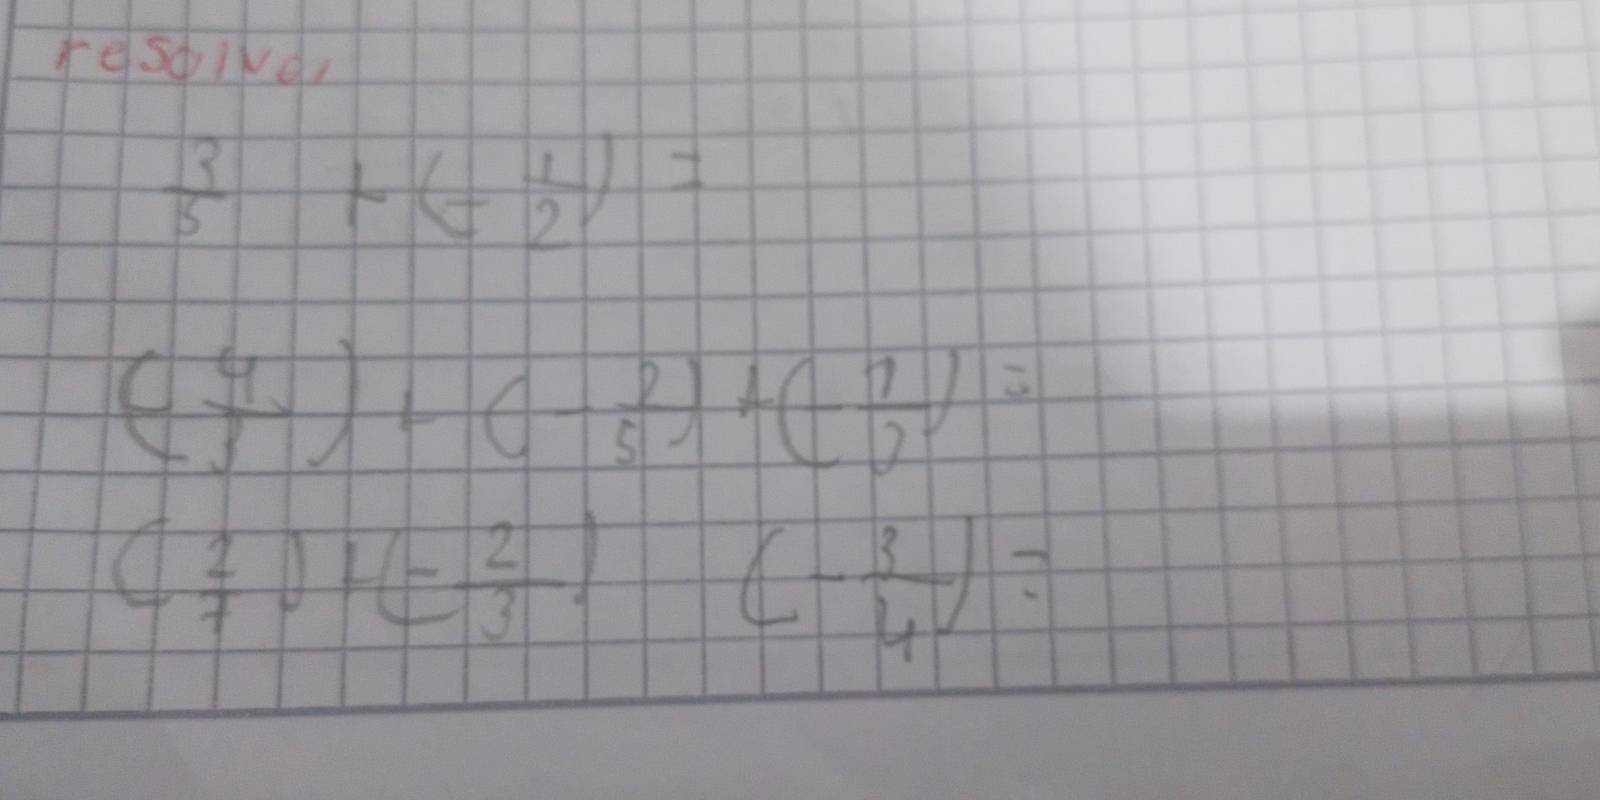 resolver
3/5 + (- 1/2) =
(4/3) + (- 2/5) + (- 1/2) =
(2/7) + (- 2/3) (- 3/4) =